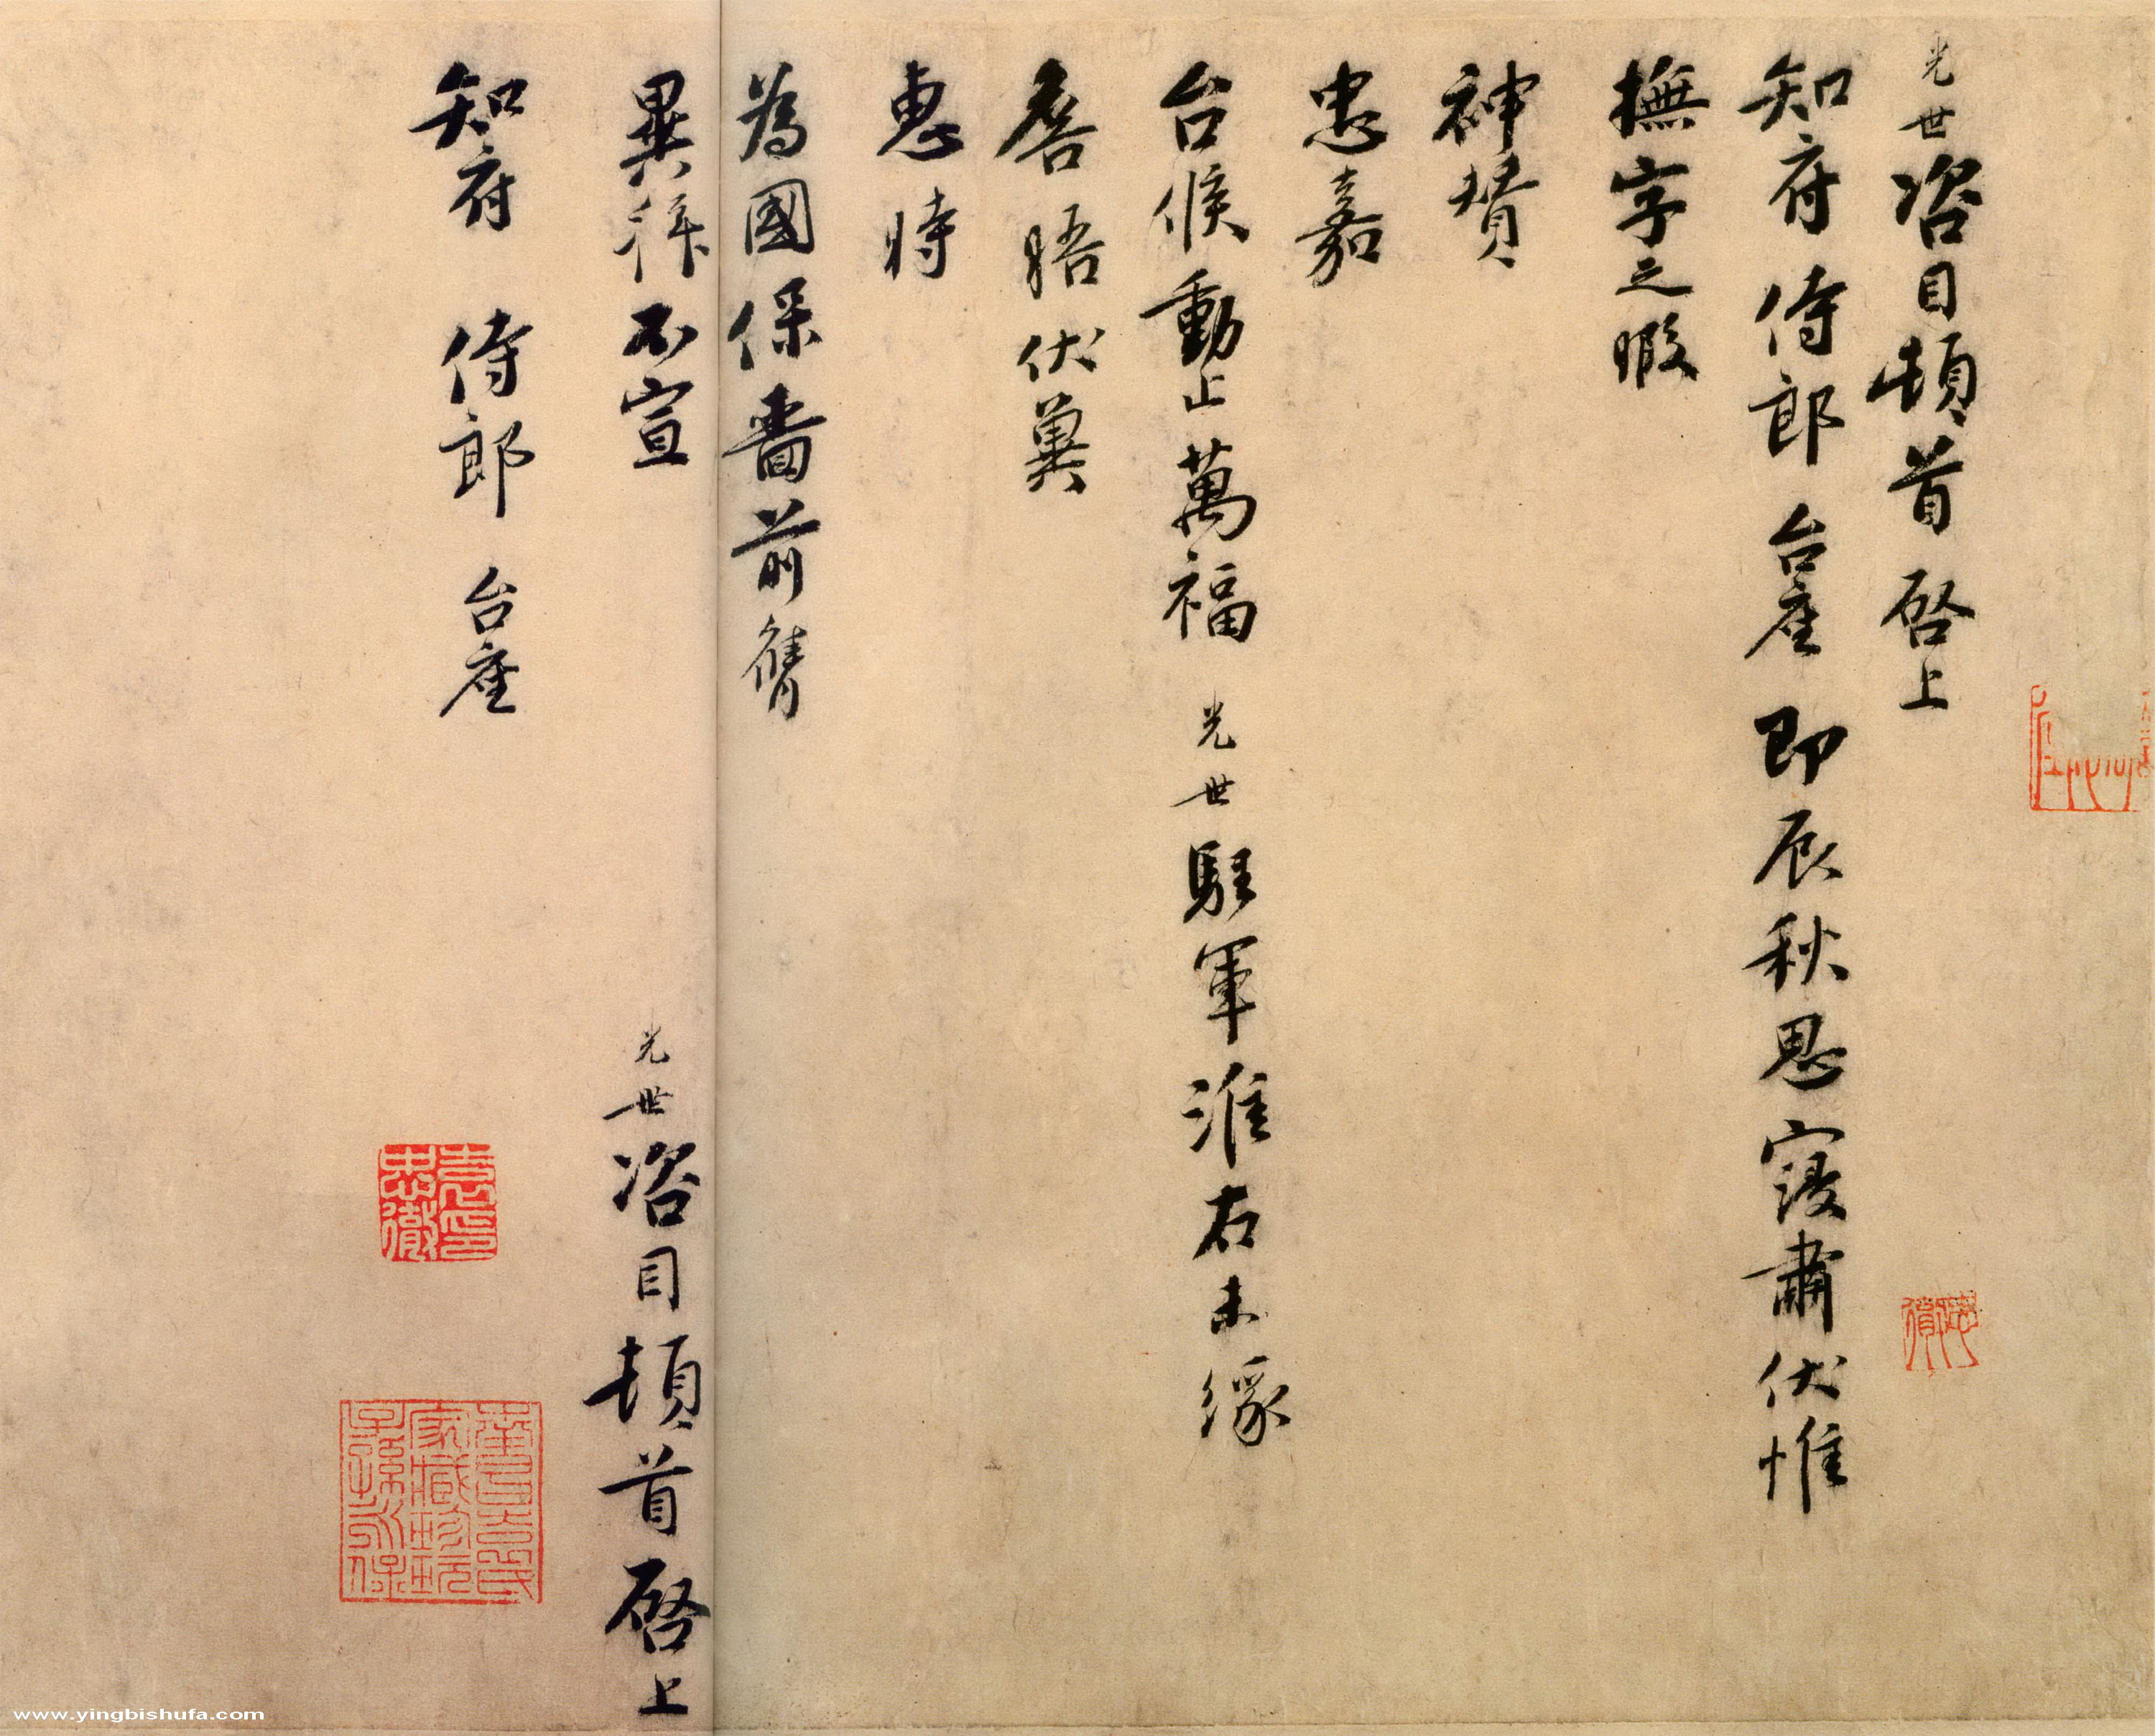 光世咨目頓首啓上
知府侍郎台座即辰秋思寖肅伏惟
撫字之暇
神贊
忠嘉
台候動止萬福光世駐軍淮右未緣
詹晤伏冀
惠時
為國保嗇前膺
異拜不宣光世咨目頓首啓上
知府侍郎台座
袁氏忠徹
家藏珍玩
子孫永保
www.yingbishufa.com